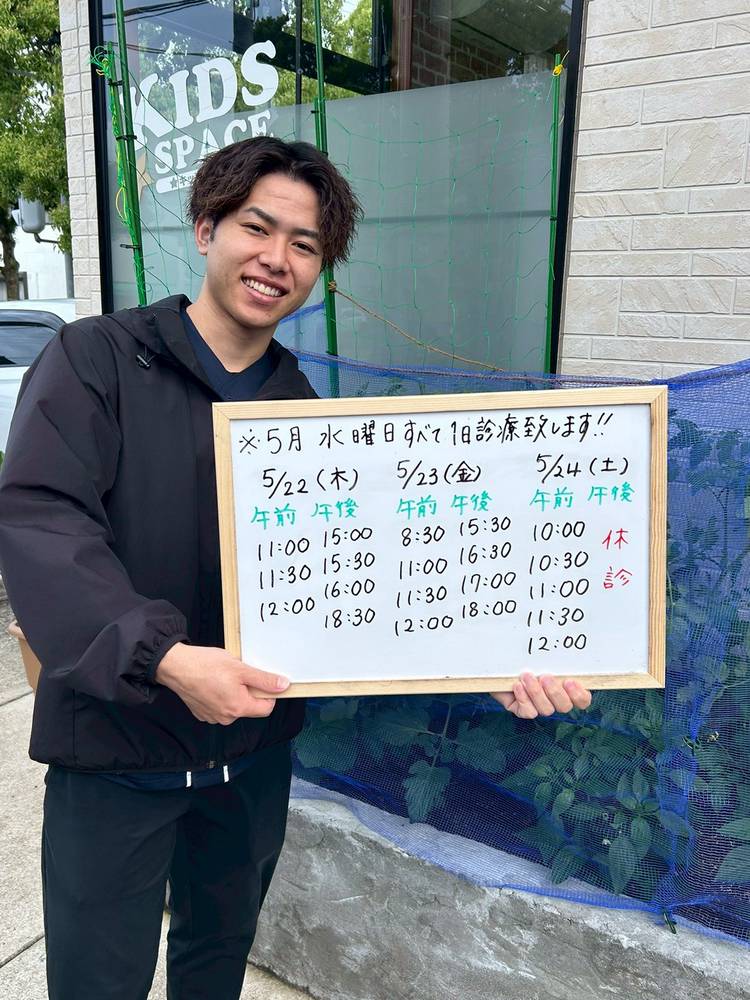 KIDS
SPACE
※5月 水曜日すべて1日診療致します!!
5/22(木) 5/23(金) 5/24(土)
午前 午後 午前 午後 午前 午後
11:00 15:00 8:30 15:30 10:00 休
11:30 15:30 11:00 16:30 10:30 診
12:00 16:00 11:30 17:00 11:00
18:30 12:00 18:00 11:30
12:00